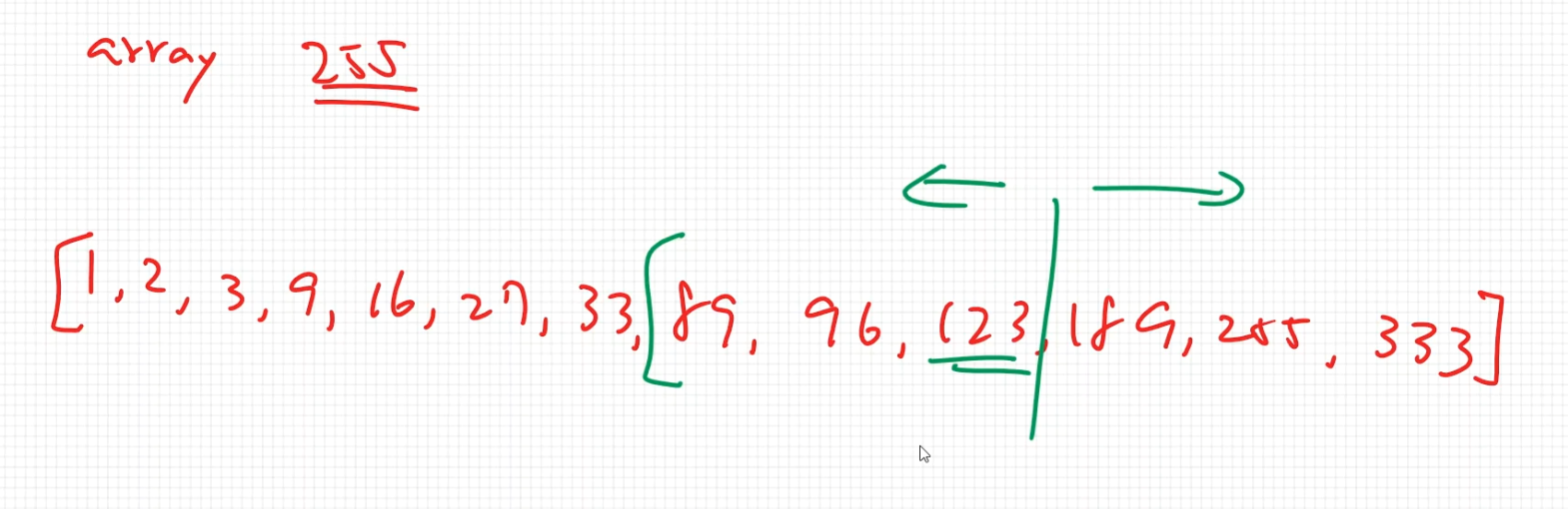 array 255
[1, 2, 3, 9, 16, 27, 33, [89, 96, 123, 189, 255, 333]